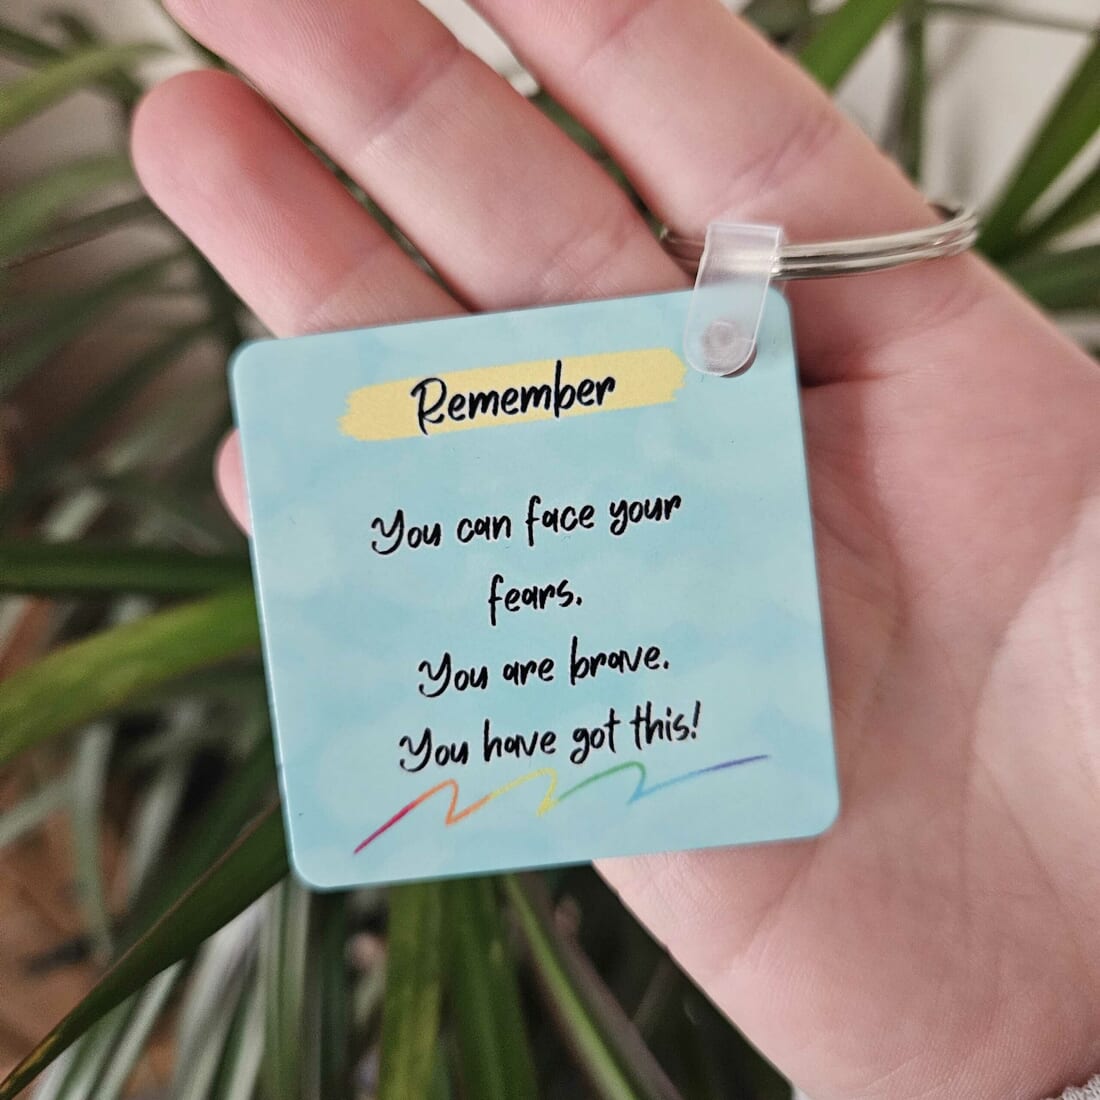 Remember
You can face your
fears.
You are brave.
You have got this!